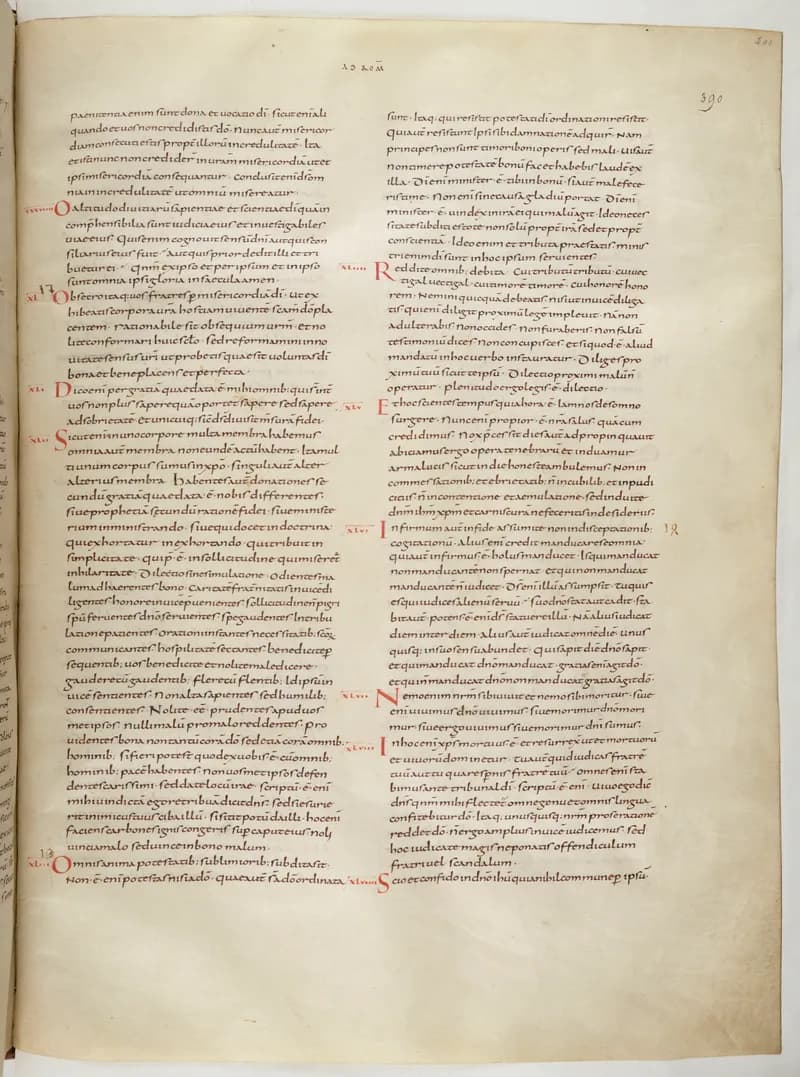 AD ROM̄
390
paenitentia enim sunt dona et uocatio dī · sicut eniī ali
quando et uos non credidistis dō · Nunc aut̄ misericor
diam consecuti estis propt̄ illorū incredulitatē · Ita
et isti nunc non crediderīn uram̄ misericordiā ut et
ipsi misericordiā consequantur · Conclusit enī ds̄ om
nia in incredulitatē ut omniū misereatur ·
O altitudo diuitiarū sapientiae et scientiae dī quā in
comp̄hensibilia sunt iudicia eius et inuestigabiles
uiae eius · Quis enim cognouit sensū dn̄i aut quis con
siliarius eius fuit · Aut quis prior dedit illi et tri
buetur ei · Qnm̄ ex ipso et per ipsum et in ipso
sunt omnia ipsi gloria in saecula amen ·
XL Obsecro itaq: uos fratres p̄ misericordiā dī · ut ex
hibeatis corpora ūra hostiam uiuentē scam̄ dō pla
centem · rationabile sit obsequium ur̄m · et no
lite conformari huic sc̄lo · sed reformamini in no
uitate sensus ur̄i ut probetis quae sit uoluntas dī
bona et beneplacens et perfecta ·
Dico enī per gratiā quae data ē mihi omnib: qui sunt
uos non plus sapere quā oportet sapere sed sapere
ad sobrietatē et unicuiq: sic ds̄ diuisit m̄surā fidei ·
Sicut enī in uno corpore multa membra habemus
omnia aut̄ membra non eundē actū habent · Ita mul
ti unum corpus sumus in xpō · singuli aut̄ alter
alterius membra · Habentes aut̄ donationes se
cundū gratiā quae data ē nobis differentes ·
siue prophetiā secundū rationē fidei · siue ministe
rium in ministrando · siue qui docet in doctrina ·
qui exhortatur in exhortando · qui tribuit in
simplicitate · qui p̄ē in sollicitudine qui miseret̄
in hilaritate · Dilectio sine simulatione · Odientes ma
lum adhaerentes bono · Caritatē frat̄nitatis inuicē di
ligentes honore inuicē p̄uenientes · sollicitudinē n̄ pigri
sp̄u feruentes dn̄o seruientes · spe gaudentes · In tribu
latione patientes · Orationi instantes necessitatib: sc̄oꝝ
communicantes · hospitalitatē sectantes · benedicite p̄
sequentib: uos benedicite et nolite maledicere ·
gaudere cū gaudentib: flere cū flentib: Id ipsū in
uicē sentientes · Non alta sapientes sed humilib:
consentientes · Nolite eē prudentes apud uos
met ipsos · nulli malū pro malo reddentes · pro
uidentes bona non tantū corā dō sed etiā corā omnib:
hominib: si fieri potest quod ex uobis ē cū omnib:
hominib: pacē habentes · non uosmet ipsos defen
dentes carissimi · sed date locū irae · scriptū ē enī
mihi uindictā ego retribuā dicit dn̄s · sed si esurie
rit inimicus tuus ciba illū · si sitit potū da illi · hoc enī
faciens carbones ignis congeris sup caput eius · noli
uinci a malo sed uince in bono malum ·
Omnis anima potestatib: sublimiorib: subdita sit ·
Non ē enī potestas nisi a dō · quae aut̄ s̄ a dō ordinata
sunt · Itaq: qui resistit potestati dī ordinationi resistit ·
Qui aut̄ resistunt ipsi sibi damnationē adquir̄ · Nam
principes non sunt timori boni operis sed mali · Uis aut̄
non timere potestatē bonū fac et habebis laudē ex
illa · Dī enī minister ē tibi in bonū · si aut̄ male fece
ris time · Non enī sine causa gladiū portat · Dī enī
minister ē uindex in irā ei qui malū agit · Ideo neces
sitate subditi estote non solū propt̄ irā sed et propt̄
conscientiā · Ideo enim et tributa praestatis minis
tri enī dī sunt in hoc ipsum seruientes ·
Reddite omnib: debita · Cui tributū tributū · cui uec
tigal uectigal · cui timorē timorē · cui honorē hono
rem · Nemini quicquā debeatis nisi ut inuicē diliga
tis qui enī diligit proximū legē impleuit · Nā non
adulterabis non occides · Non furaberis non falsū
testimoniū dices non concupisces et si quod ē aliud
mandatū in hoc uerbo instauratur · Diliges pro
ximū tuū sicut te ipsū · Dilectio proximi malū n̄
operatur · plenitudo ergo legis ē dilectio ·
Et hoc scientes tempus quia hora ē iam nos de somno
surgere · Nunc enī propior ē nr̄a salus quā cum
credidimus · Nox p̄cessit dies aut̄ adpropinquauit
abiciamus ergo opera tenebrarū et induamur
arma lucis sicut in die honeste ambulemus · Non in
commessationib: et ebrietatib: n̄ in cubilib: et inpudi
citiis n̄ in contentione et aemulatione · sed induite
dnm̄ ihm̄ xpm̄ et carnis curā ne feceritis in desideriis ·
Infirmum aut̄ in fide assumite non in disceptationib:
cogitationū · Alius enī credit manducare se omnia ·
qui aut̄ infirmus ē holus manducet · Is qui manducat
non manducantē non spernat · et qui non manducat
manducantē n̄ iudicet · Ds̄ enī illū assumpsit · tu quis
es qui iudices alienū seruū · suo dn̄o stat aut cadit · sta
bit aut̄ · potens ē enī ds̄ statuere illū · Nā alius iudicat
diem inter diem · alius aut̄ iudicat omnē diē · Unus
quisq: in suo sensu abundet · qui sapit diē dn̄o sapit ·
et qui manducat dn̄o manducat · gratias enī agit dō ·
et qui n̄ manducat dn̄o non manducat et gratias agit dō ·
Nemo enim nr̄m sibi uiuit et nemo sibi moritur · siue
enī uiuimus dn̄o uiuimus siue morimur dn̄o mori
mur · siue ergo uiuimus siue morimur dn̄i sumus ·
In hoc enī xps̄ mortuus ē et resurrexit ut et mortuorū
et uiuorū dominetur · tu aut̄ quid iudicas fratrē
tuū aut tu quare spernis fratrē tuū · omnes enī sta
bimus ante tribunal dī · scriptū ē enī · Uiuo ego dic̄
dn̄s qnm̄ mihi flectet̄ omne genu et omnis lingua
confitebitur dō · Itaq: unusquisq: nr̄m pro se rationē
reddet dō · N̄ ergo amplius inuicē iudicemus · sed
hoc iudicate magis ne ponatis offendiculum
fratri uel scandalum ·
Scio et confido in dn̄o ihū quia nihil commune p̄ ipsū ·